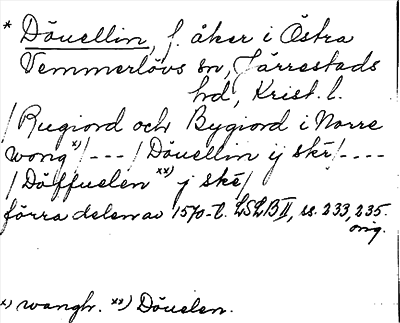 * Döuellin, f. åker i Östra
Temmerlövs sn, Järrestads
hd, Krist. l.
/Rugiord och Bygiord i Norre
wong x)/---/Döuellin ij skē/----
/Döffuelen xx) j skē/
förra delen av 1570-t. LSLB II, ss. 233, 235.
orig.
x) wangh. xx) Döuelen.